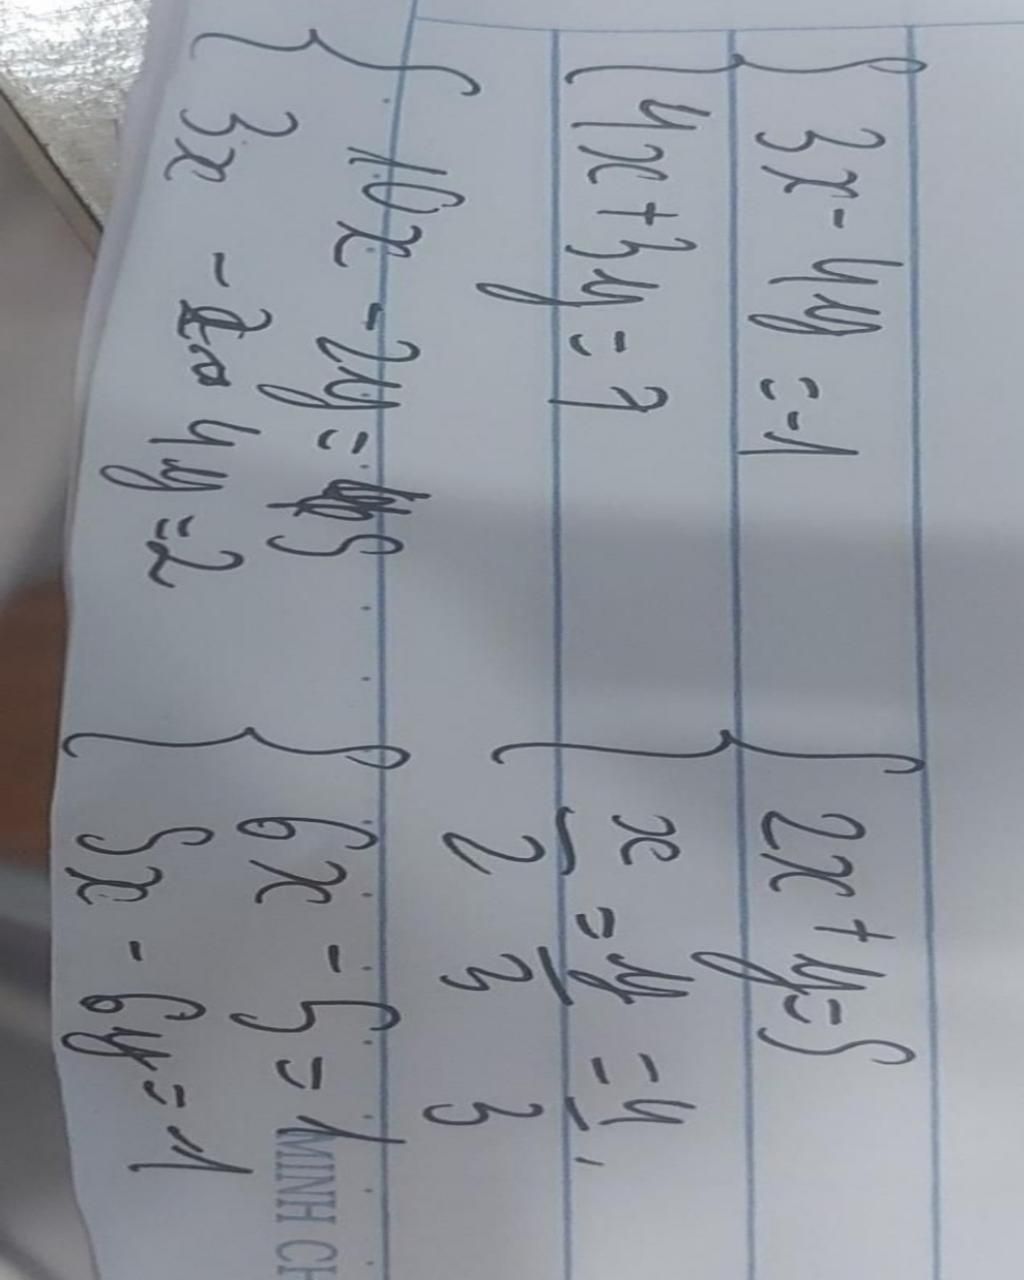 3x - 4y = -1
4x + 3y = 7
2x + y = 5
x/2 = y/3 = 4/3
10x - 2y = 5
3x - 4y = 2
6x - 5 = 1
5x - 6y = 1
MINH CH